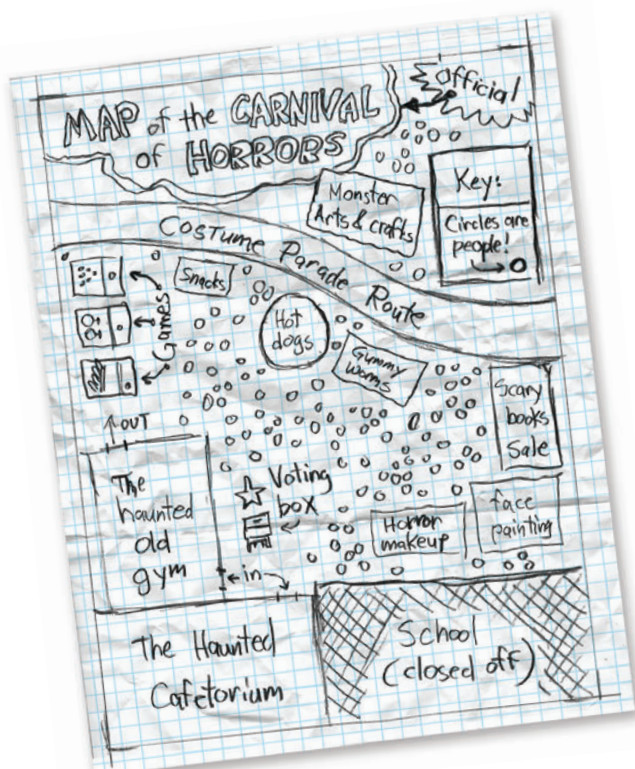 MAP of the CARNIVAL
of HORRORS
Official
Key:
Circles are
people!
Monster
Arts & crafts
Costume Parade Route
Snacks
Games
Hot
dogs
Gummy
worms
Scary
books
Sale
OUT
The
haunted
old
gym
Voting
box
Horror
makeup
face
painting
in
The Haunted
Cafetorium
School
(closed off)